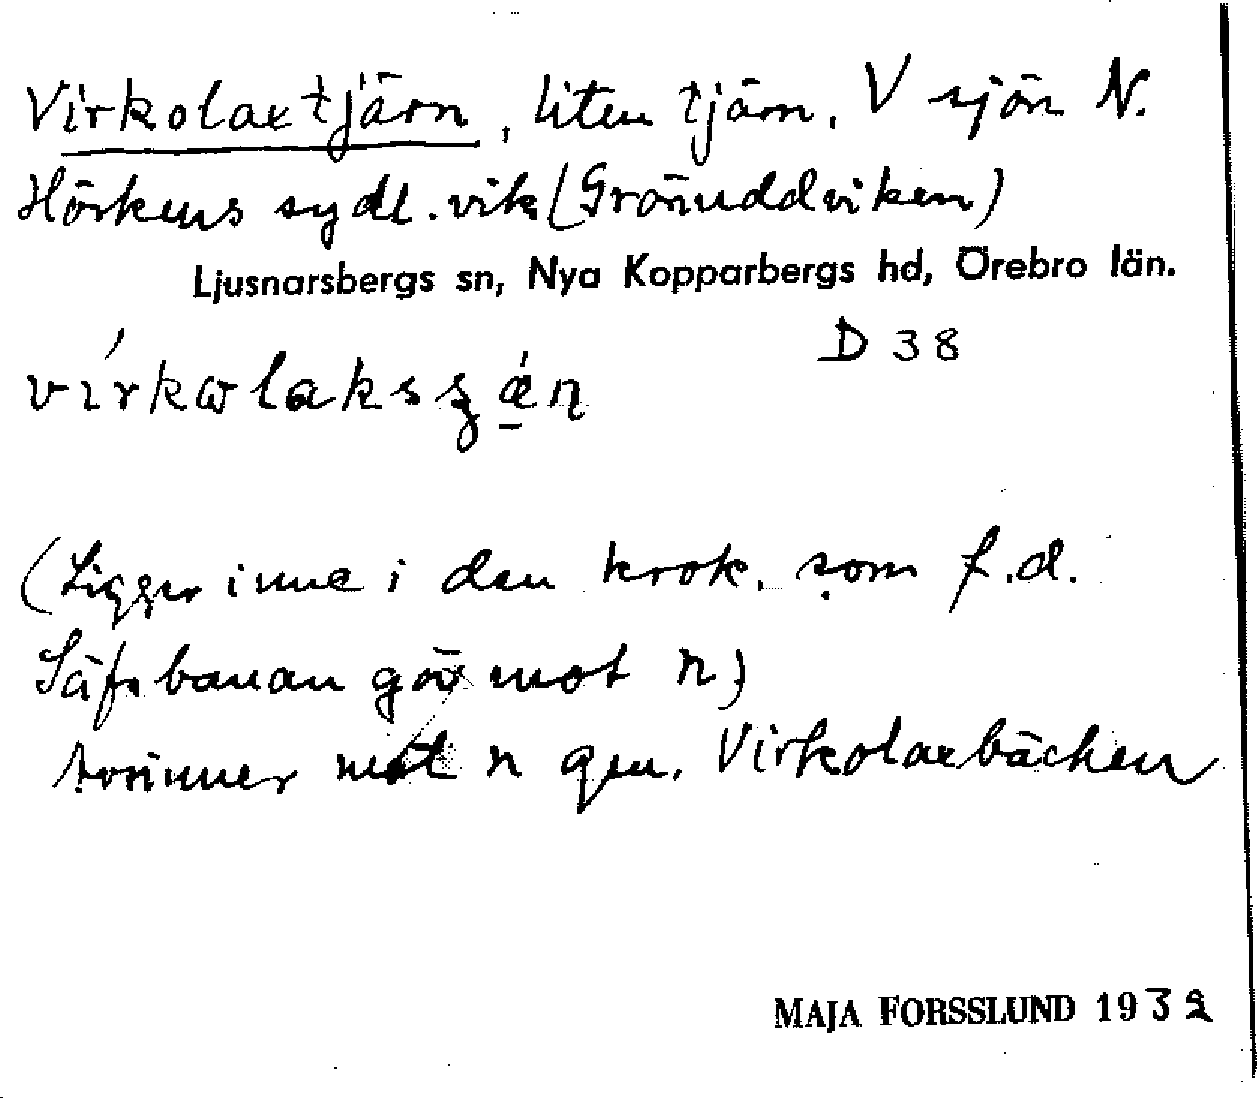 Virkolaxtjärn, liten tjärn, V sjön N.
Hörkens sydl. vik (Grönuddviken)
Ljusnarsbergs sn, Nya Kopparbergs hd, Örebro län.
D 38
(Ligger inne i den krok, som f.d.
Säfsbanan gör mot n)
Avrinner mot n gm. Virkolaxbäcken
MAJA FORSSLUND 1932